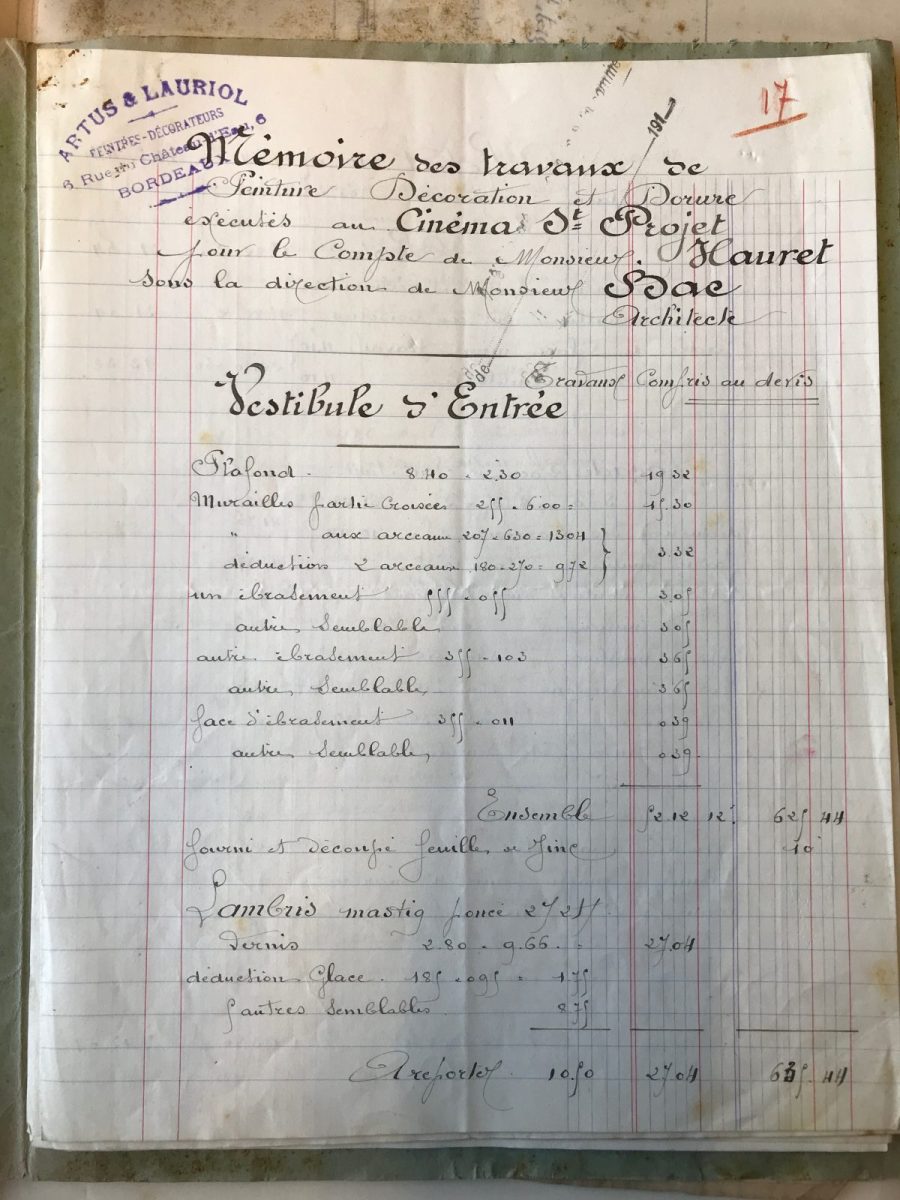 17
ARTUS & LAURIOL
PEINTRES-DÉCORATEURS
6, Rue du Château d'Eau, 6
BORDEAUX
191
Mémoire des travaux de
Peinture Décoration et Dorure
exécutés au Cinéma St Projet
pour le Compte de Monsieur. Hauret
sous la direction de Monsieur Bac
Architecte
de
Travaux Compris au devis
Vestibule d'Entrée
Plafond. 8.40 . 2.30 19 32
Murailles partie Croisées 255 . 600 = 15.30
" aux arceaux 207 . 630 = 1304
3.32
déduction 2 arceaux 180 . 270 = 972
un ébrasement 555 . 055 3.05
autre Semblable 305
autre ébrasement 355 . 103 365
autre Semblable 365
face d'ébrasement 355 . 011 039
autre Semblable 039
Ensemble 52.12 12. 625 44
fourni et découpé feuille de Zinc 10
Lambris mastiq poncé
vernis 2.80 . 9.66 . 27.04
déduction Glace . 185 . 095 = 175
5 autres semblables 875
A reporter . 10.50 2704 635. 44